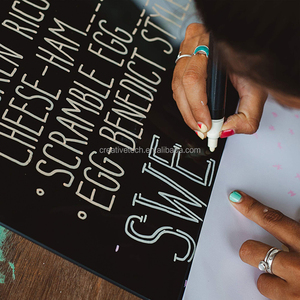 RICO
CHEESE-HAM
• SCRAMBLE EGG
• EGG BENEDICT STYL
SWE
creativetech.en.alibaba.com